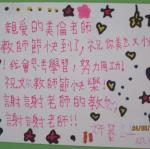 親爱的英倫老師
教師節快到了,祝你美麗又
!我會思考學習,努力用功!
祝你教師節快樂!
謝謝老師的教
謝謝老師!!